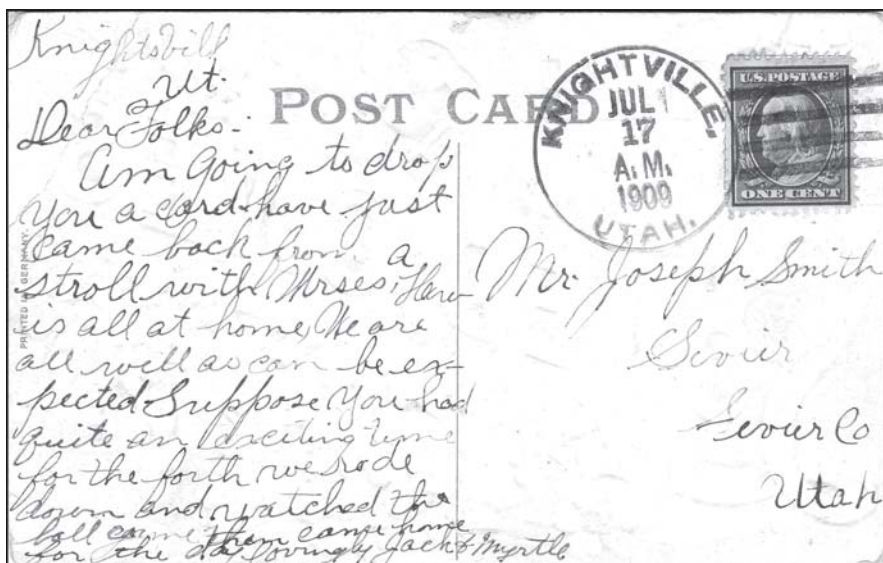 Knightsvill
Ut.
Dear Folks-
Am going to drop
you a card have just
came back from a
stroll with Mrses,
is all at home, We are
all well as can be ex-
pected Suppose you had
quite an exciting time
for the forth we rode
down and watched the
ball game then came home
for the day lovingly Jack & Myrtle
PRINTED IN GERMANY.
POST CARD
KNIGHTVILLE,
JUL
17
A.M.
1909
UTAH.
U.S. POSTAGE
ONE CENT
Mr. Joseph Smith
Sevier
Sevier Co
Utah